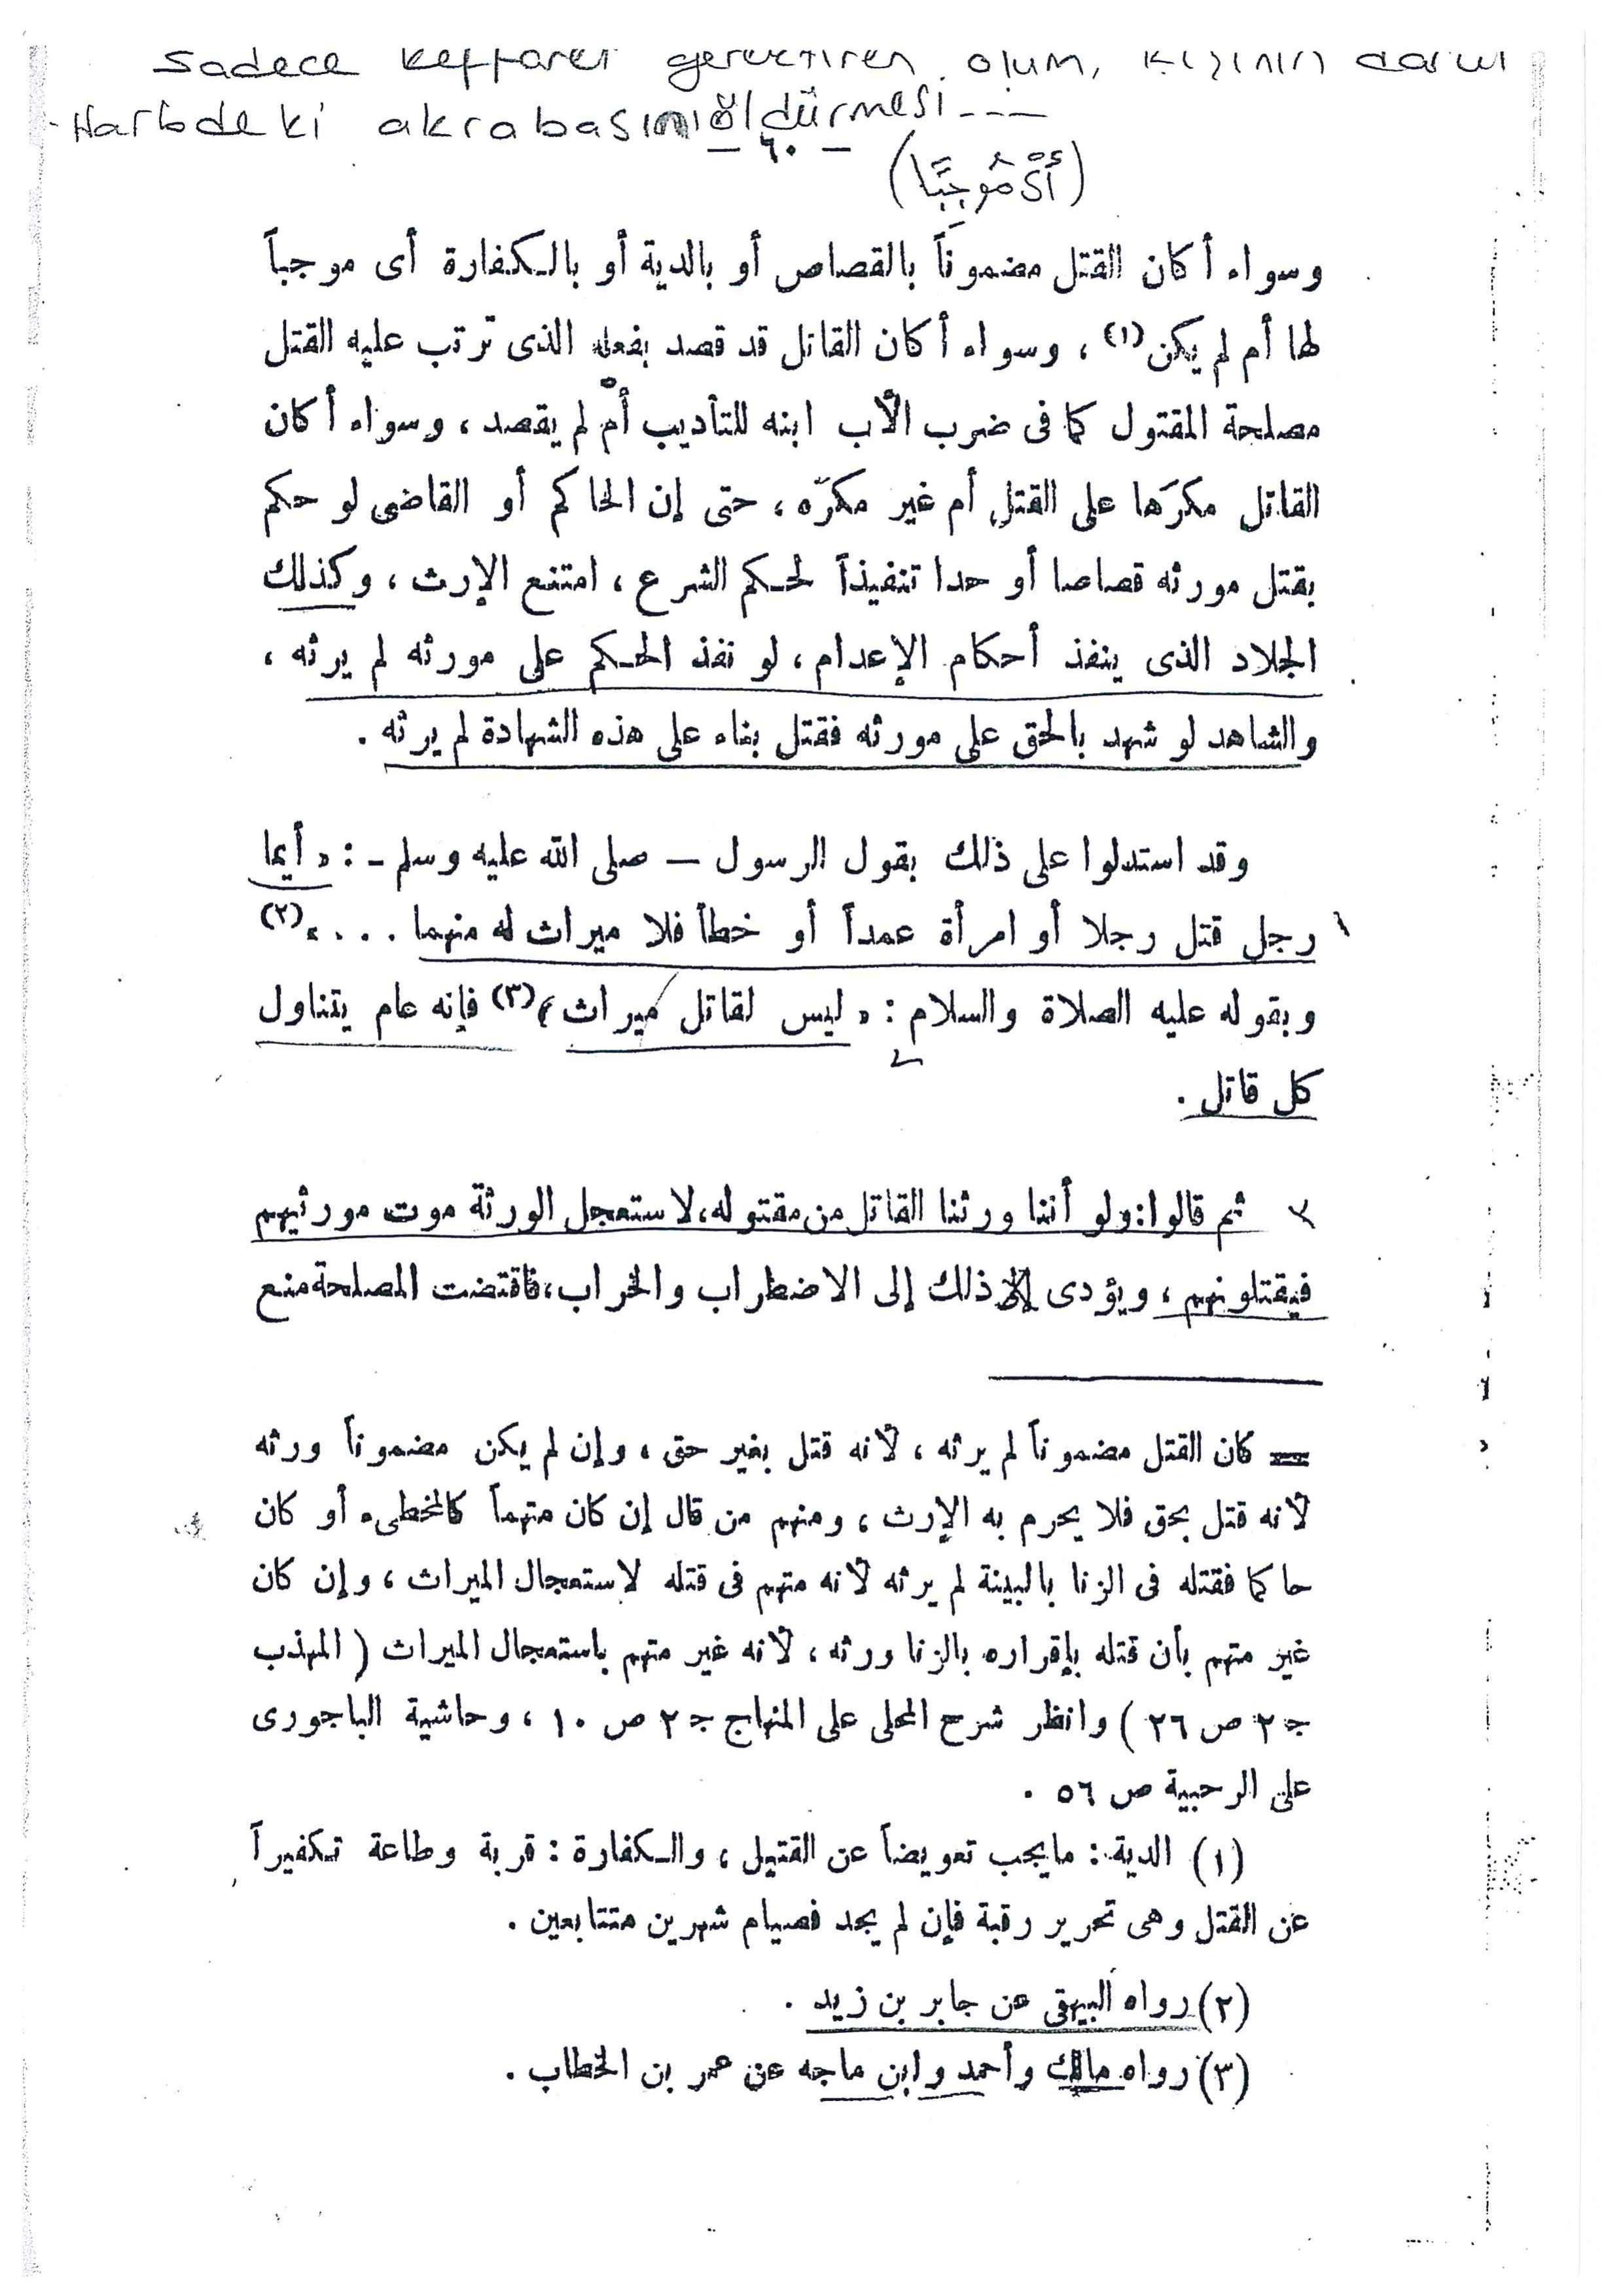 Sadece keffaret gerektiren ölüm, kişinin darul
Harbdeki akrabasını öldürmesi ---
— ٦٠ —
(أَىْ مُوجِبًا)
وسواء أكان القتل مضموناً بالقصاص أو بالدية أو بالكفارة أى موجباً
لها أم لم يكن (١) ، وسواء أكان القاتل قد قصد بفعله الذى ترتب عليه القتل
مصلحة المقتول كما فى ضرب الأب ابنه للتأديب أم لم يقصد ، وسواء أكان
القاتل مكرَها على القتل أم غير مكرَه ، حتى إن الحاكم أو القاضى لو حكم
بقتل مورثه قصاصا أو حدا تنفيذاً لحكم الشرع ، امتنع الإرث ، وكذلك
الجلاد الذى ينفذ أحكام الإعدام ، لو نفذ الحكم على مورثه لم يرثه ،
والشاهد لو شهد بالحق على مورثه فقتل بناء على هذه الشهادة لم يرثه .
وقد استدلوا على ذلك بقول الرسول — صلى الله عليه وسلم — : « أيما
١ رجل قتل رجلا أو امرأة عمداً أو خطأ فلا ميراث له منهما . . . » (٢)
وبقوله عليه الصلاة والسلام : « ليس لقاتل ميراث » (٣) فإنه عام يتناول
٢
كل قاتل .
٣ ثم قالوا : ولو أننا ورثنا القاتل من مقتوله ، لاستعجل الورثة موت مورثيهم
فيقتلونهم ، ويؤدى ذلك إلى الاضطراب والخراب ، فاقتضت المصلحة منع
= كان القتل مضموناً لم يرثه ، لأنه قتل بغير حق ، وإن لم يكن مضموناً ورثه
لأنه قتل بحق فلا يحرم به الإرث ، ومنهم من قال إن كان متهماً كالمخطىء أو كان
حاكما فقتله فى الزنا بالبينة لم يرثه لأنه متهم فى قتله لاستعجال الميراث ، وإن كان
غير متهم بأن قتله بإقراره بالزنا ورثه ، لأنه غير متهم باستعجال الميراث ( المهذب
جـ ٢ ص ٢٦ ) وانظر شرح المحلى على المنهاج جـ ٢ ص ١٠ ، وحاشية الباجورى
على الرحبية ص ٥٦ .
(١) الدية : مايجب تعويضاً عن القتيل ، والكفارة : قربة وطاعة تكفيراً
عن القتل وهى تحرير رقبة فإن لم يجد فصيام شهرين متتابعين .
(٢) رواه البيهقى عن جابر بن زيد .
(٣) رواه مالك وأحمد وابن ماجه عن عمر بن الخطاب .